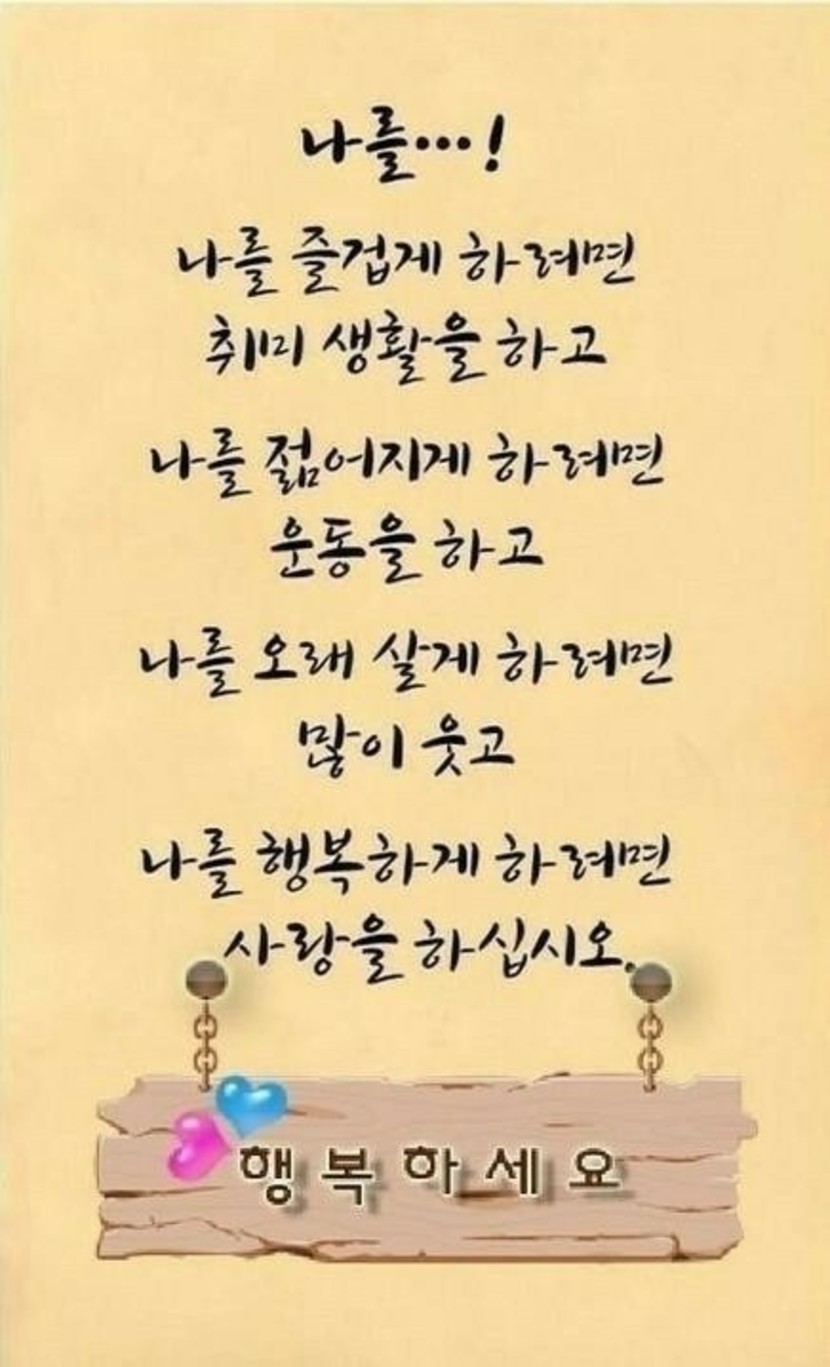 나를…!
나를 즐겁게 하려면
취미 생활을 하고
나를 젊어지게 하려면
운동을 하고
나를 오래 살게 하려면
많이 웃고
나를 행복하게 하려면
사랑을 하십시오.
행복하세요